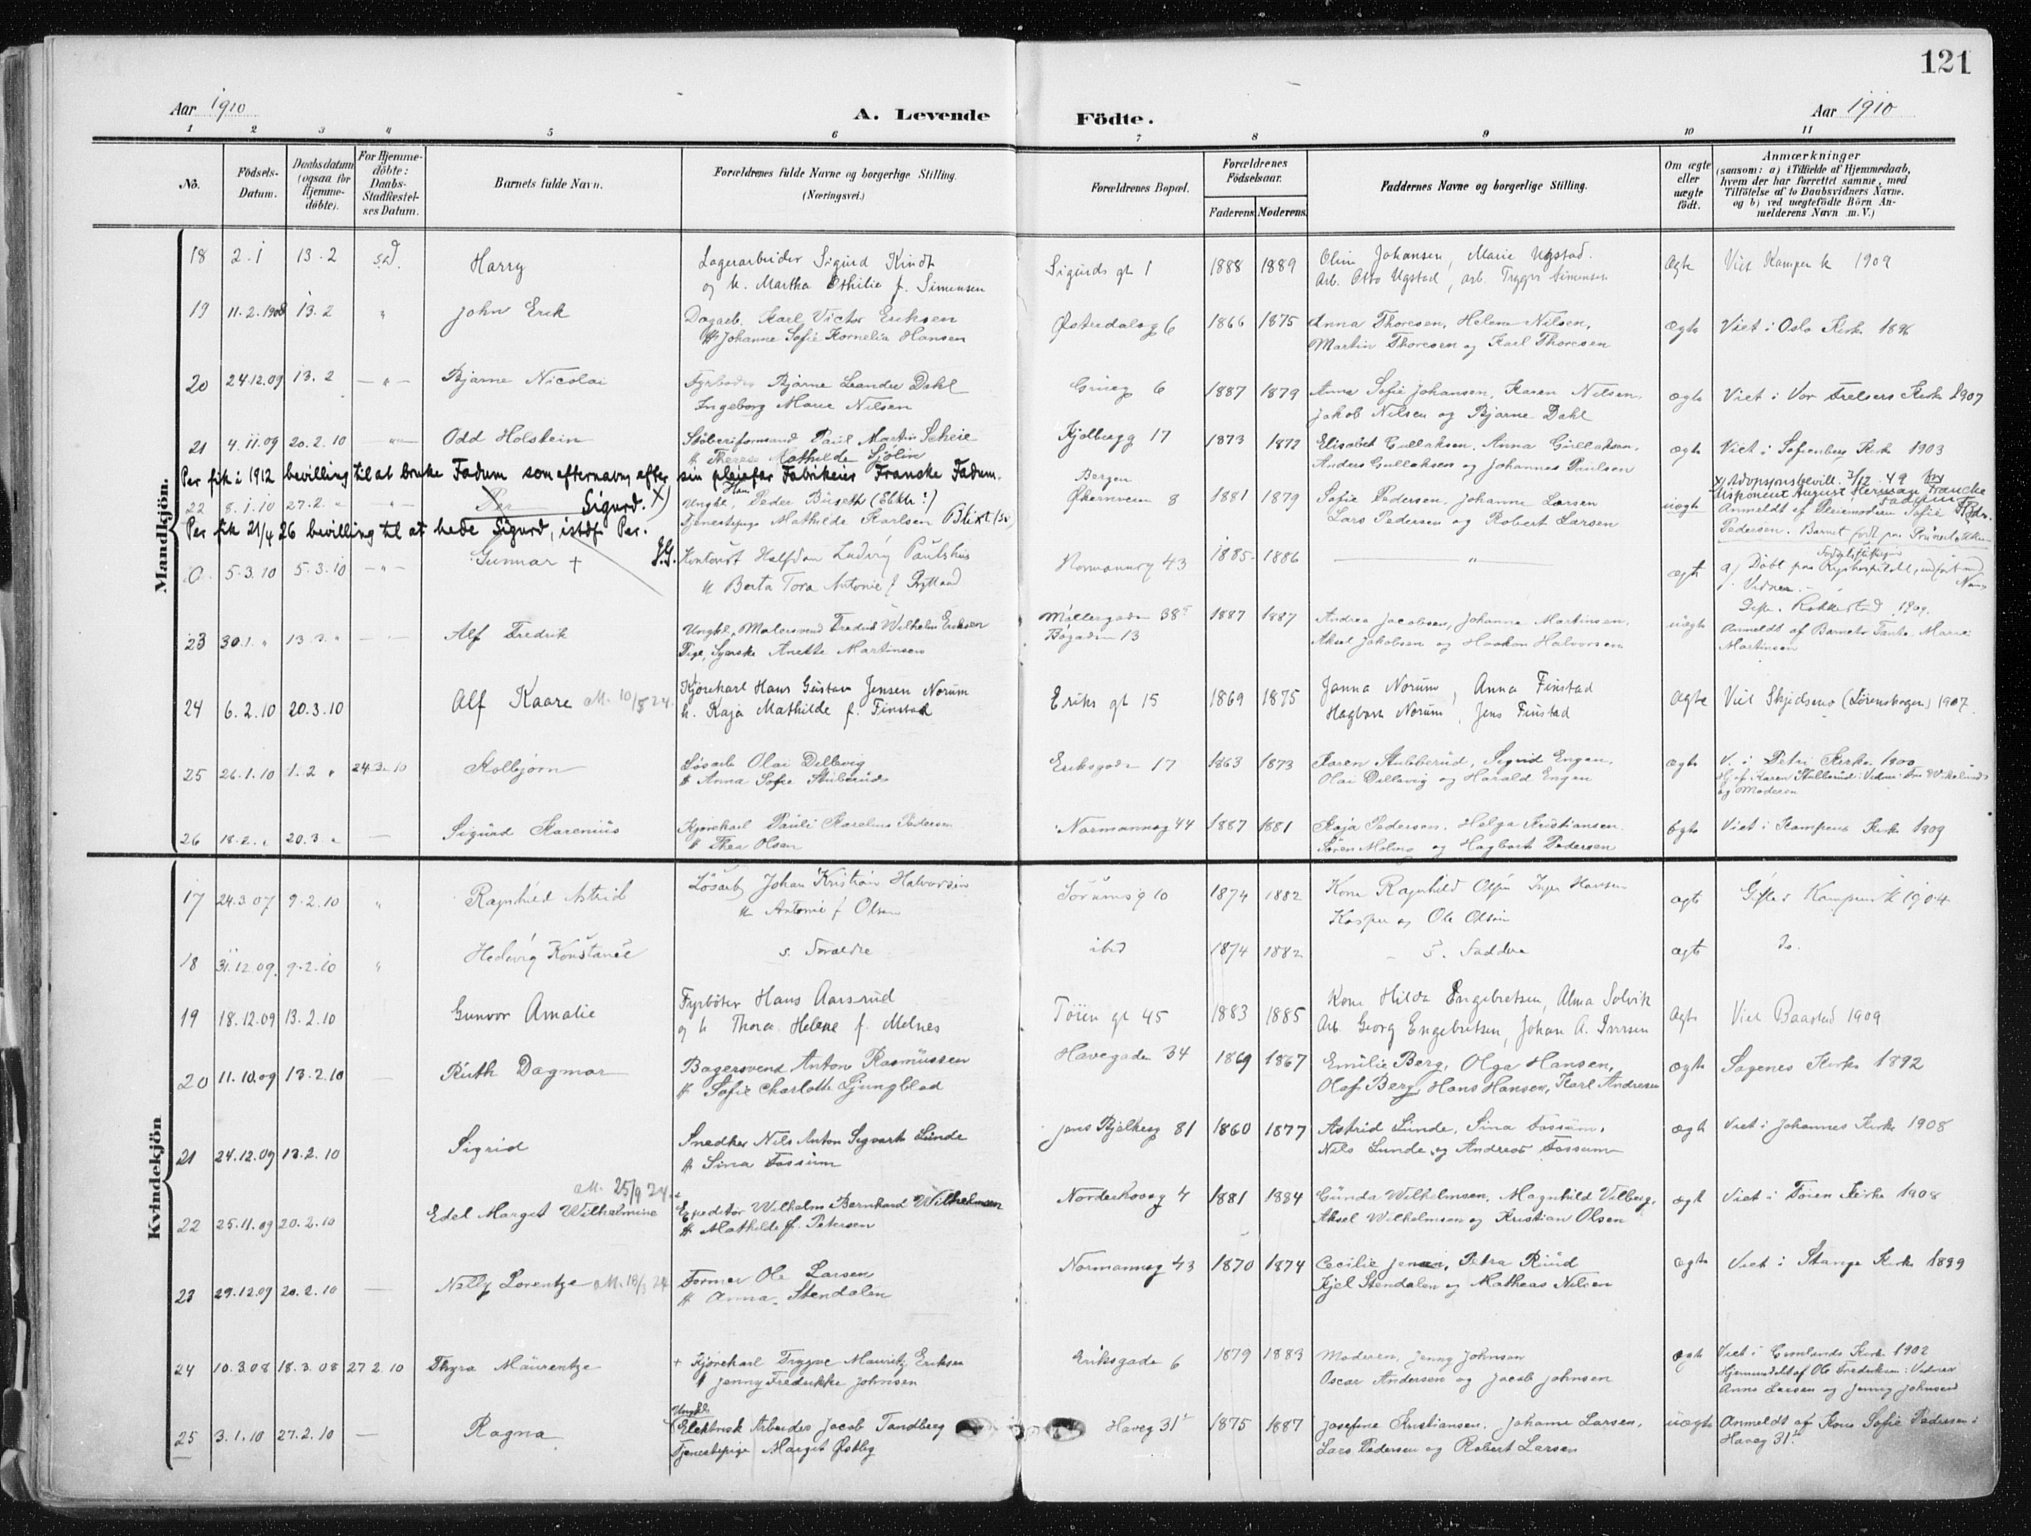 121
Aar 1910
A. Levende Födte.
Aar 1910
1 2 3 4 5 6 7 8 9 10 11
No.
Födsels-Datum.
Daabsdatum (ogsaa for Hjemmedöbte).
For Hjemmedöbte: Daabs-Stadfæstelses Datum.
Barnets fulde Navn.
Forældrenes fulde Navne og borgerlige Stilling. (Næringsvei.)
Forældrenes Bopæl.
Forældrenes Födselsaar.
Faderens. Moderens.
Faddernes Navne og borgerlige Stilling.
Om ægte eller uægte født.
Anmærkninger
(saasom: a) i Tilfælde af Hjemmedaab, hvem der har forrettet samme, med Tilföielse af to Daabsvidners Navne. og b) ved uægtefödte Börn Anmelderens Navn m. V.)
Mandkjön.
18 2.1 13.2 Harry Lagerarbeider Sigurd Kindt Sigurds gt 1 1888 1889 Oline Johansen, Marie Ugstad. Ægte Viet Kampen k 1909
og h. Martha Othilie f. Simensen Arb. Otto Ugstad, arb. Trygve Simensen
19 11.2.1908 13.2 " John Erik Dagarb. Karl Victor Eriksen Østerdalsg 6 1866 1875 Anna Thoresen, Helene Nilsen, ægte Viet i Oslo Kirke 1896
H Johanne Sofie Kornelia Hansen Martin Thoresen og Karl Thoresen
20 24.12.09 13.2 — " — Bjarne Nicolai Fyrbøder Bjarne Leander Dahl Grüng 6 1887 1879 Anna Sofie Johansen, Karen Nilsen, ægte Viet i Vor Frelsers Kirke 1907
Ingeborg Marie Nilsen Jakob Nilsen og Bjarne Dahl
21 4.11.09 20.2.10 Odd Holstein Støberiformand Paul Martin Scheie Kjølbergg 17 1873 1872 Elisabet Gullaksen, Anna Gullaksen, ægte Viet i Sofienberg Kirke 1903
H Therese Mathilde Sjölin Anders Gullaksen og Johannes Paulsen
Per fik i 1912 bevilling til at bruke Fadum som efternavn efter sin pleiefar Fabrikeier Francke Fadum.
22 8.1.10 27.2 Per Sigurd. x) Ungkl. Peder (Elktr:) Bergen Økernveien 8 1881 1879 Sofie Pedersen, Johanne Larsen uægte x) Adopsjonsbevill. 3/12 49 for Disponent August Herman Francke Fadum
Tjenestepige Mathilde Karlsen Lars Pedersen og Robert Larsen Anmeldt af Pleiemoderen Sofie
Pedersen. Barnet født paa Grünerløkken
Per fik 21/4 26 bevilling til at hede Sigurd, istdf. Per.
0 5.3.10 5.3.10 — " — Gunnar + Kontorist Halfdan Ludvig Paulshus Normannsg 43 1885 1886 — " — ægte
H Berta Tora Antonie f.
23 30.1. " 13.3. " Alf Fredrik Ungkl. Malersvend Fredrik Wilhelm Eriksen Møllergaden 38 1887 1887 Andrea Jacobsen, Johanne Martinsen. uægte Anmeldt af Barnets Tante Marie
Pige, Syerske Anette Martinsen Bøgaden 13 Aksel Jakobsen og Haakon Halvorsen Martinsen
24 6.2.10 20.3.10 Alf Kaare Att. 10/5 24. Kjørekarl Hans Gustav Jensen Norum Eriks gt 15 1869 1875 Janna Norum, Anna Finstad Ægte Viet Skjedsmo (Lørenskogen) 1907
h. Kaja Mathilde f. Finstad Hagbart Norum, Jens Finstad
25 26.1.10 1.2 " 24.3.10 Kolbjørn Løsarb Olai Dillevig Eriksgaden 17 1863 1873 Karen Stubberud, Sigrid Engen. ægte V. i Petri Kirke 1900
H Anna Sofie Stuberud Olai Dillevig og Harald Engen og Moderen
26 18.2. " 20.3. " — Sigurd Karenius Kjørekarl Pauli Karelius Pedersen Normannsg 44 1887 1881 Kaja Pedersen. Helga Kristiansen. ægte Viet i Kampens Kirke 1909
H Thea Olsen Søren Molnes og Hagbart Pedersen
Kvindekjön
17 24.3.07 9.2.10 " Ragnhild Astrid Løsarb Johan Kristian Halvorsen Sørumsg 10 1874 1882 Kone Ragnhild Olsen Inger Hansen ægt Giftes Kampens k 1904
H Antonie f Olsen Kasper og Ole Olsen
18 31.12.09 9.2.10 " Hedevig Konstanse s. Foraldre ibd 1874 1882 — s. Faddere ægt Do.
19 18.12.09 13.2.10 Gunvor Amalie Fyrbøter Hans Aarsrud Tøien gt 45 1883 1885 Kone Hilda Engebretsen, Alma Solvik Ægte Viet Baastad 1909
og h Thora Helene f. Melnes Arb. Georg Engebretsen, Johan A. Iversen
20 11.10.09 13.2.10 — Ruth Dagmar Bagersvend Anton Rasmussen Havegaden 34 1869 1867 Emilie Berg, Olga Hansen, ægte Sagenes Kirke 1892
H Sofie Charlotte Ljungblad Olaf Berg, Hans Hansen, Karl Andresen
21 24.12.09 13.2.10 Sigrid Snedker Nils Anton Sigvart Lunde Jens Bjelkesg 81 1860 1877 Astrid Lunde, Sina Fossum, ægte Viet i Johannes Kirke 1908
H Sina Fossum Nils Lunde og Andreas Fossum
22 25.11.09 20.2.10 Edel Margit Wilhelmine Att. 25/9 24. Expeditør Wilhelm Bernhard Wilhelmsen Norderhovsg 4 1881 1884 Gunda Wilhelmsen, Magnhild Vilberg, ægte Viet i Tøien Kirke 1908
H Mathilde f. Petersen Aksel Wilhelmsen og Kristian Olsen
23 29.12.09 20.2.10 — Nelly Lorentze Former Ole Larsen Normannsg 43 1870 1874 Cecilie Jensen, Petra Ruud ægte Viet i Stange Kirke 1899
H Anna Stendalen Kjel Stendalen og Matheas Nilsen
24 10.3.08 18.3.08 27.2.10 Thyra Maurentze + Kjørekarl Trygve Mauritz Eriksen Eriksgade 6 1879 1883 Moderen, Jenny Johnsen ægte Viet i Grønlands Kirke 1902
H Jenny Fredrikke Johnsen Oscar Andersen og Jacob Johnsen Hjemmedøbt af Ole Fredriksen: Vidner
Anna Larsen og Jenny Johnsen
25 3.1.10 27.2.10 — Ragna Ungkl. Elektrisk Arbeider Jacob Tandberg Haveg 31 1875 1887 Josefine Kristiansen. Johanne Larsen, uægte Anmeldt af Kone Sofie Pedersen i
Tjenestepige Margit Østby Lars Pedersen og Robert Larsen Haveg 31